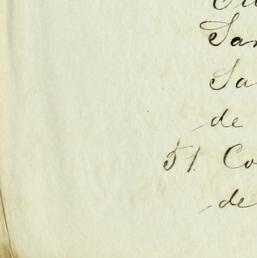 San
Sa
de
51 Co
de